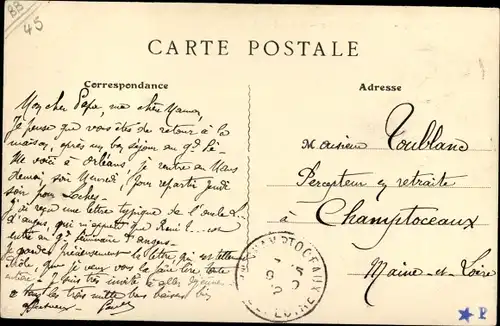 BB
45
CARTE POSTALE
Correspondance
Adresse
Mon cher Papa, ma chère Maman,
Je pense que vous êtes de retour à la
maison, après un bon séjour au
Me voici à Orléans, je rentre au Mans
soir, pour repartir jeudi
soir pour Loches
J'ai reçu une lettre typique de l'oncle L..
d'Angers, qui m'apprend que René
entre au Gd Séminaire d'Angers
Je garde précieusement la lettre, qui est
que je veux vous la faire lire toute
Je suis très invité à aller
tous les très mille bons baisers bien
affectueux
Monsieur Toublanc
Percepteur en retraite
à Champtoceaux
Maine-et-Loire
CHAMPTOCEAUX
ET-LOIRE
P